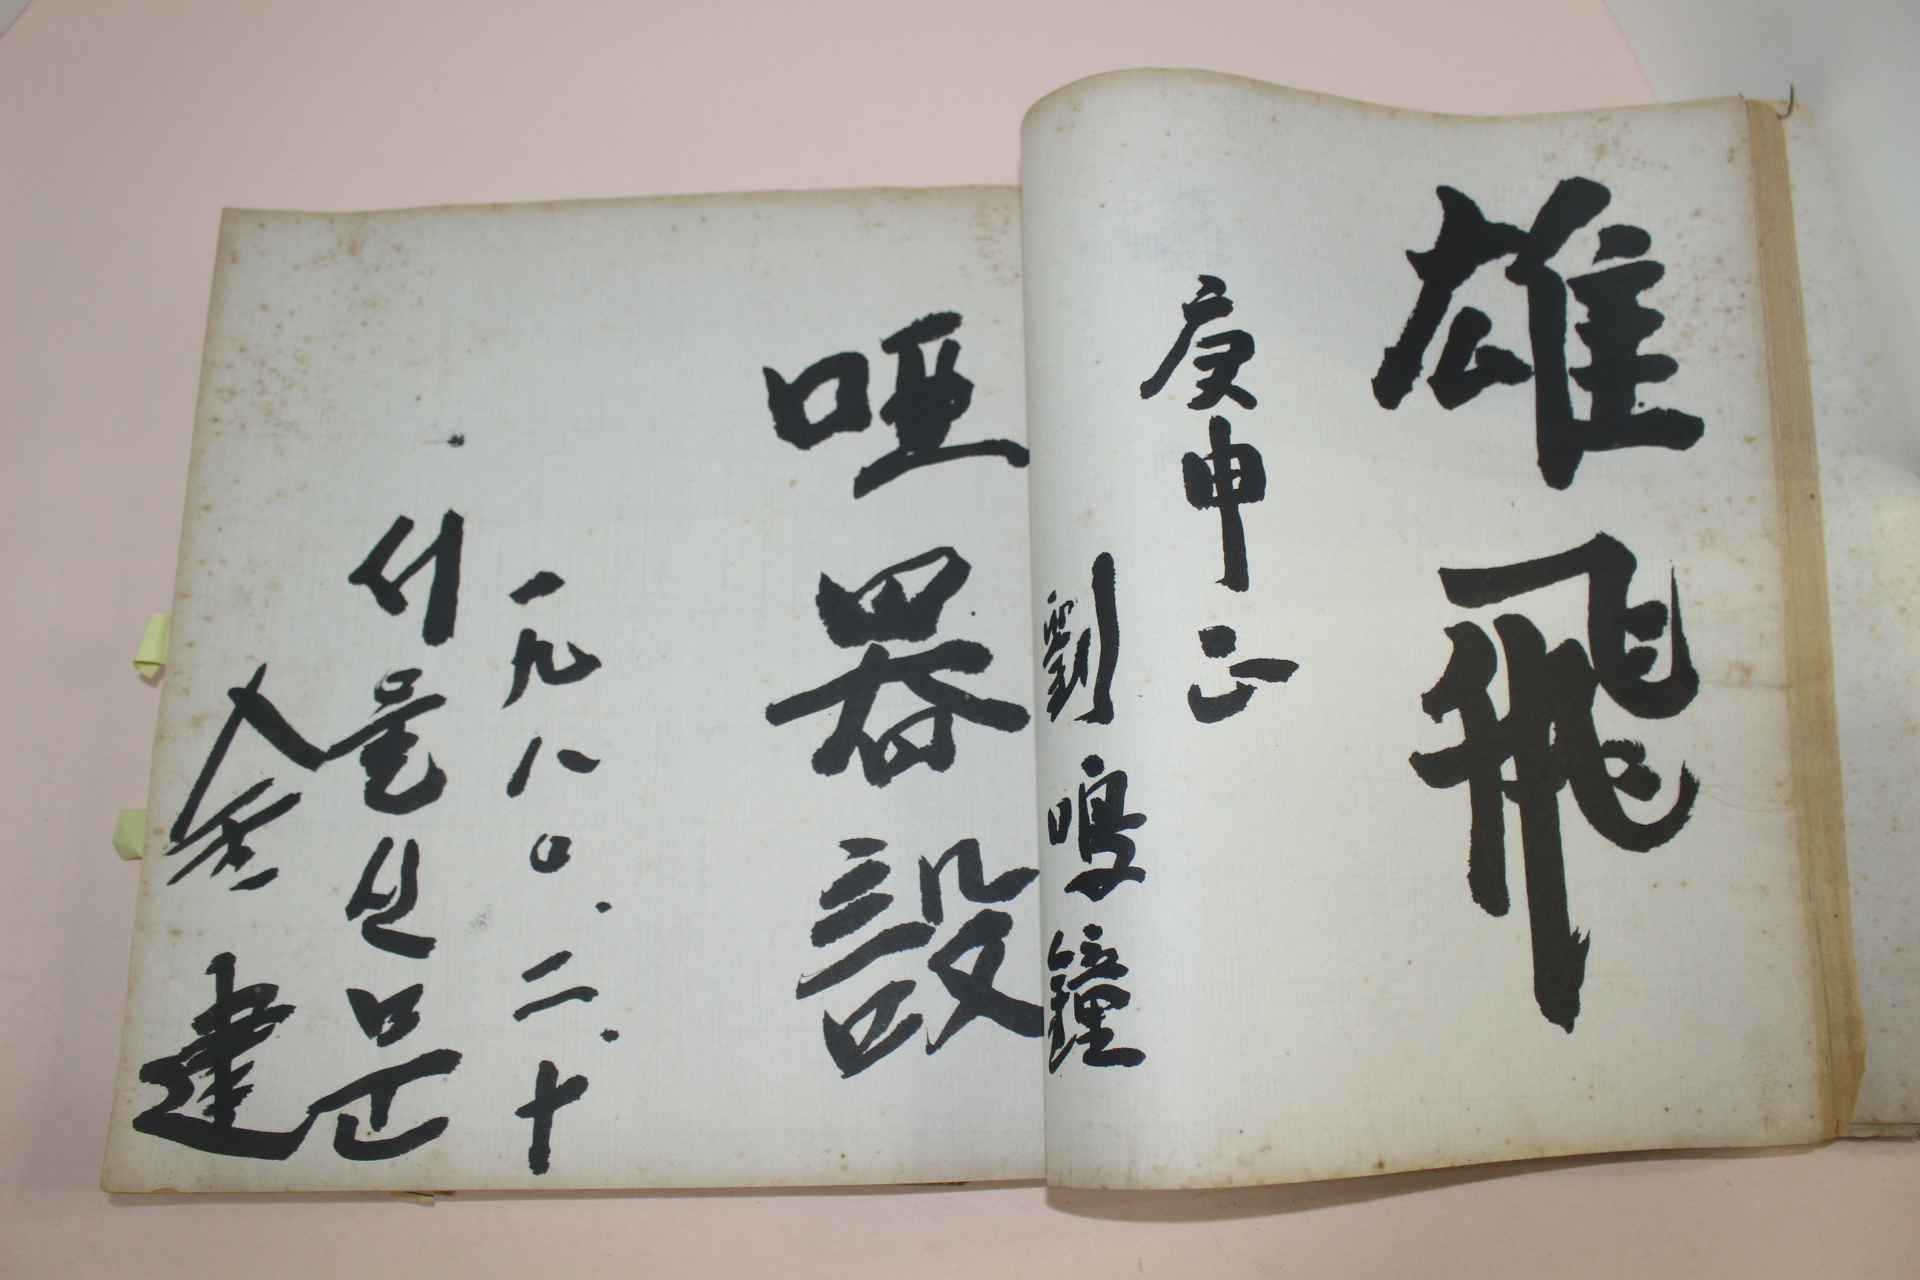 雄飛
庚申 正
劉鳴鐘
啞 設
一九八〇.二.十
서울신문
金 建